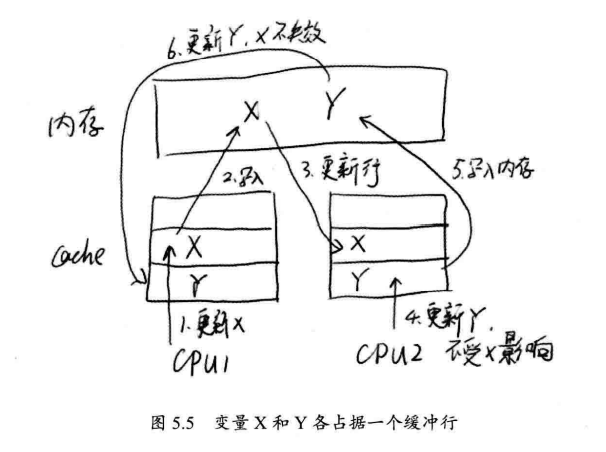 6.更新Y,X不失效
内存
X
Y
2.写入
3.更新行
5.写入内存
Cache
X
Y
X
Y
1.更新X
CPU1
CPU2
4.更新Y,
不受X影响
图 5.5 变量 X 和 Y 各占据一个缓冲行